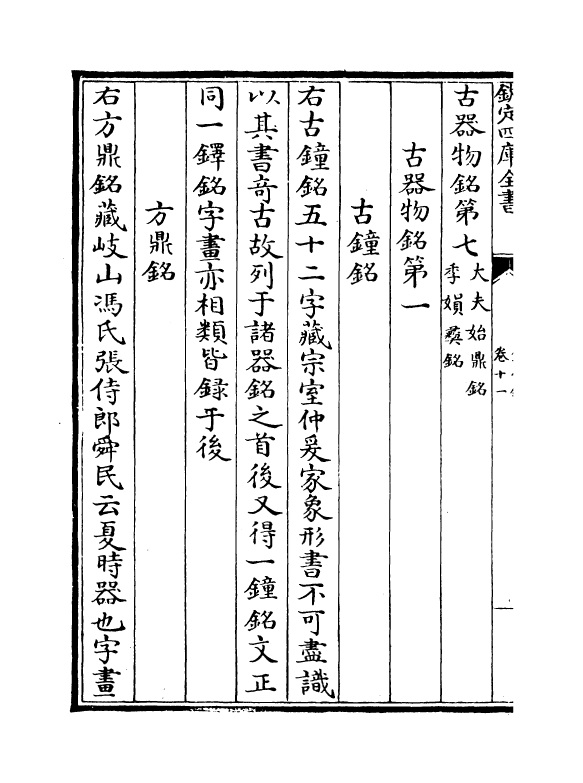 欽定四庫全書
卷十一
古器物銘第七
大夫始鼎銘
季娟彝銘
古器物銘第一
古鐘銘
右古鐘銘五十二字藏宗室仲爰家象形書不可盡識
以其書奇古故列于諸器銘之首後又得一鐘銘文正
同一鐸銘字畫亦相類皆録于後
方鼎銘
右方鼎銘藏岐山馮氏張侍郎舜民云夏時器也字畫